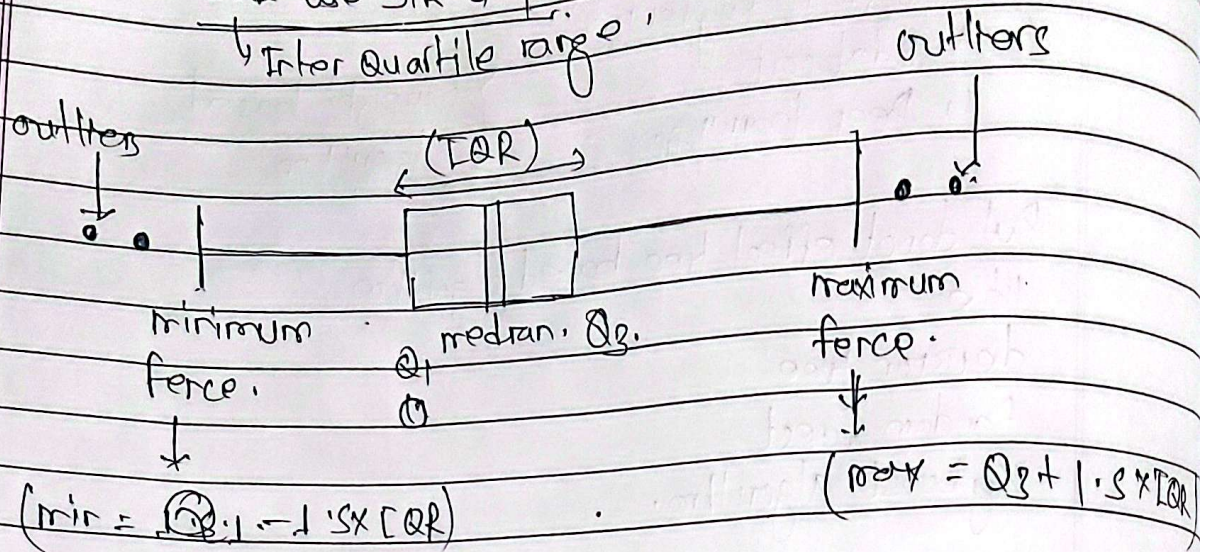 Inter Quartile range
outliers
outliers
(IQR)
minimum
fence.
Q1
median. Q3.
maximum
fence.
(min = Q1 - 1.5x IQR)
(max = Q3 + 1.5 x IQR)